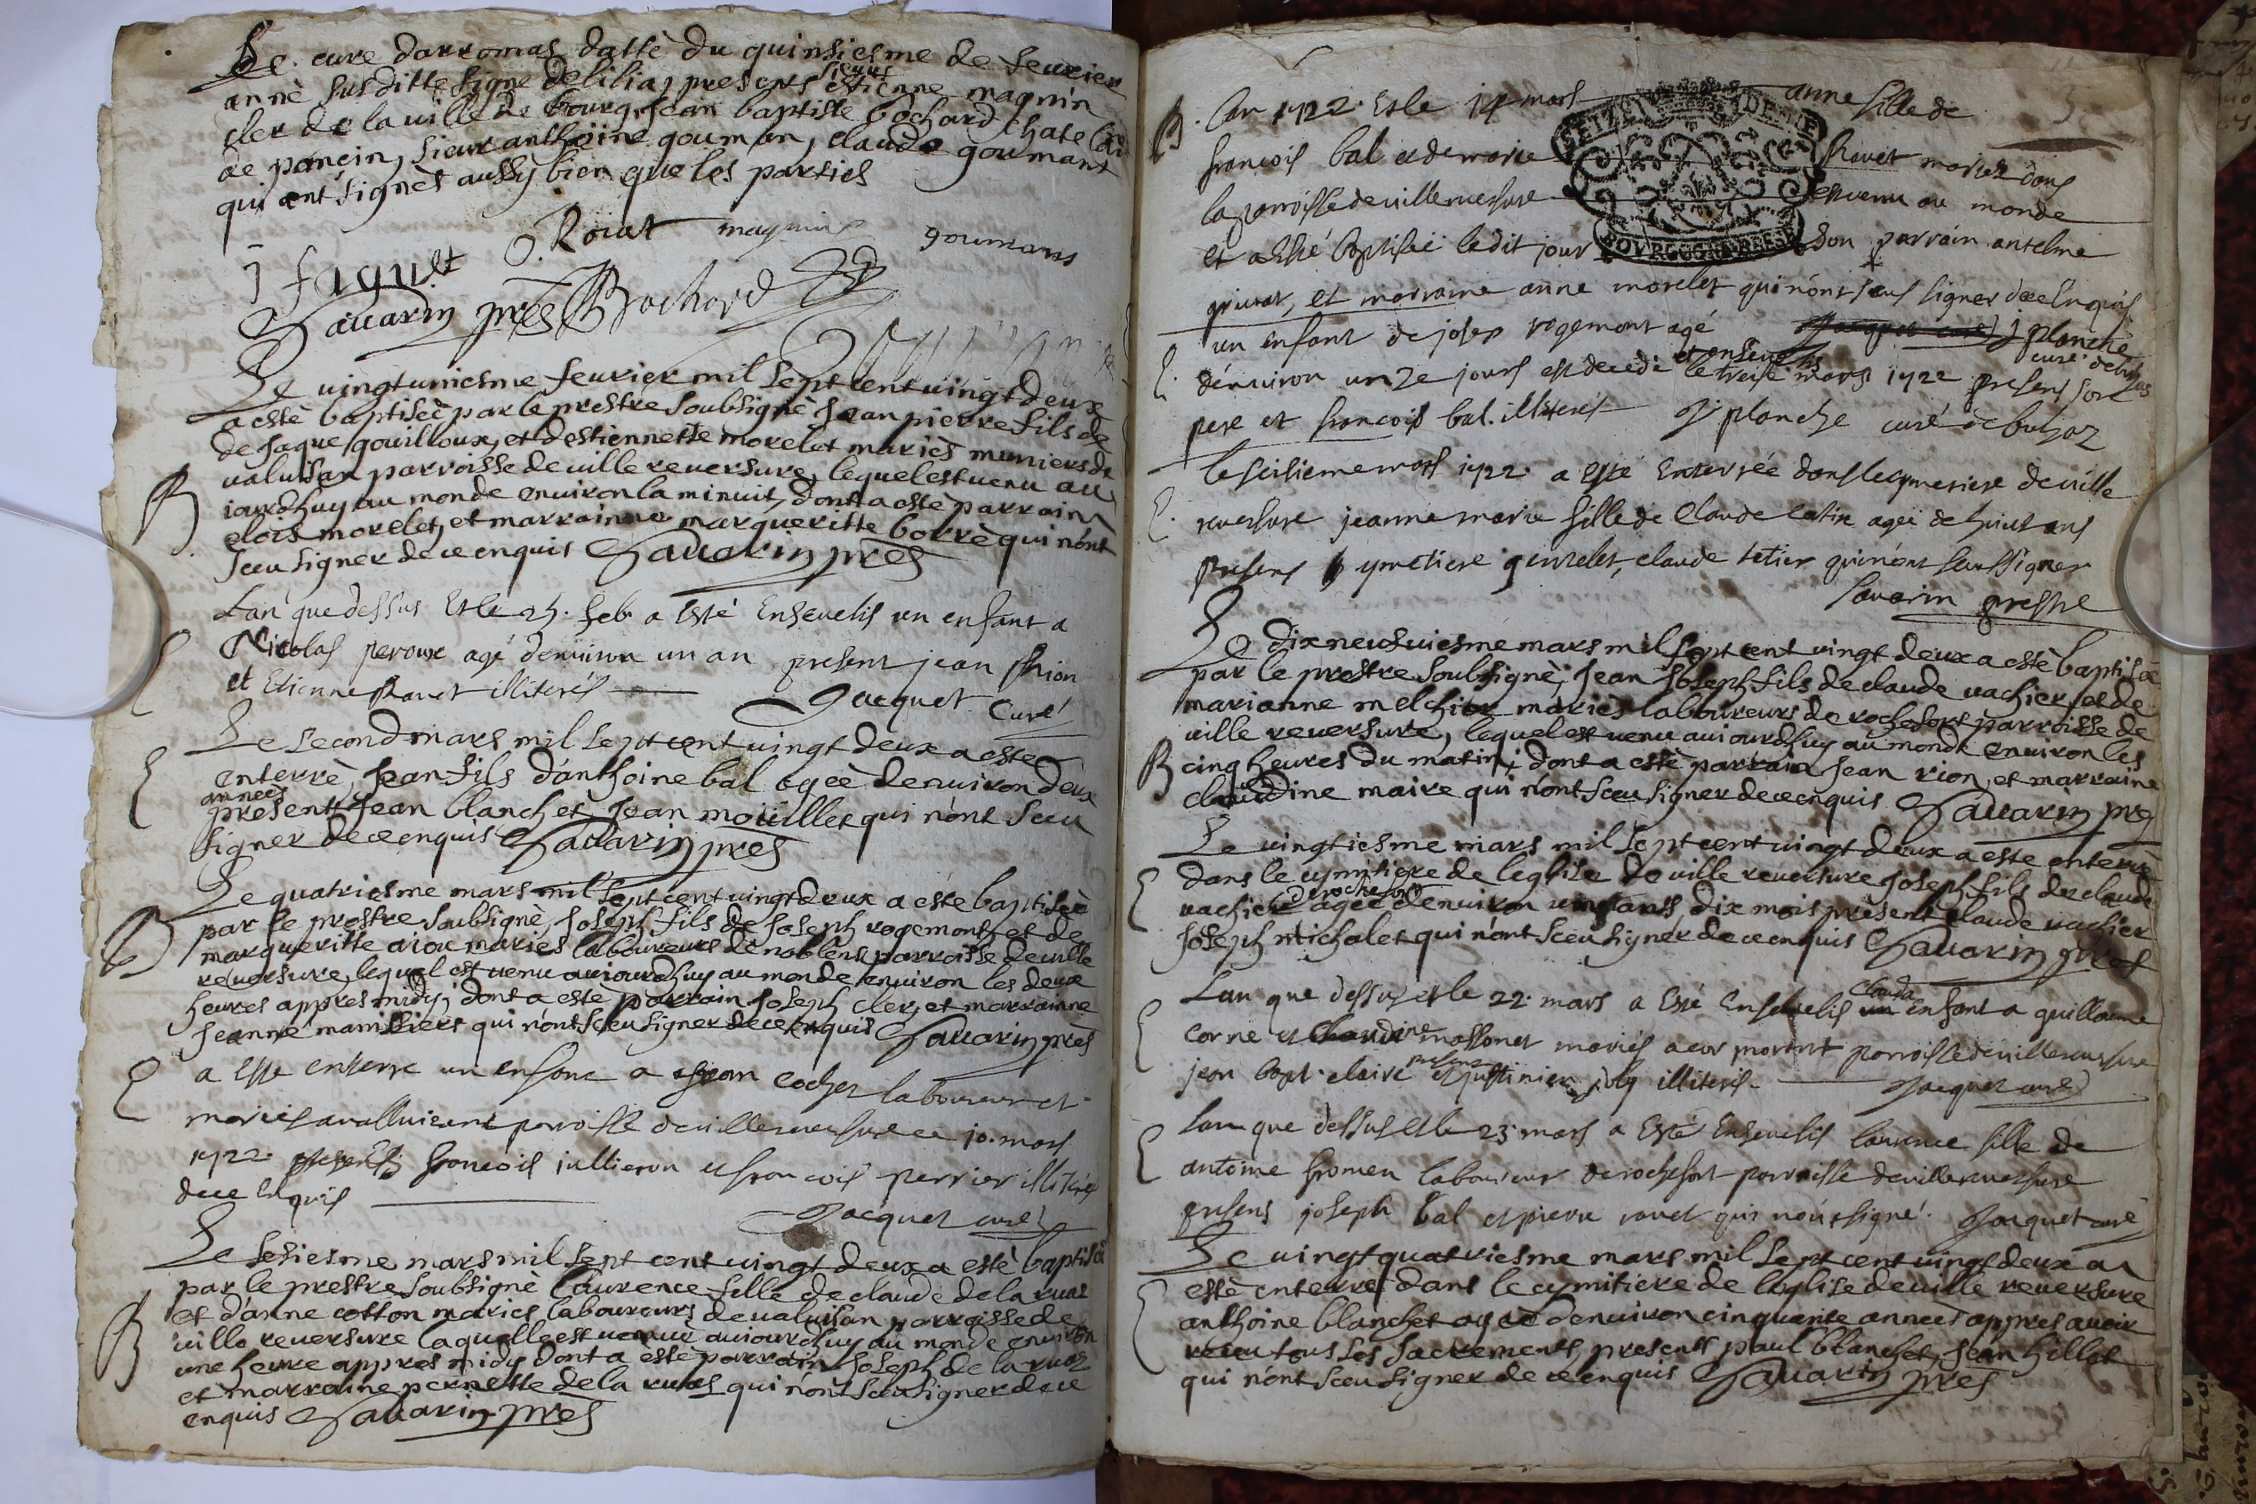 Le. cure darromas datté du quinsiesme de feurier
annè susditte signe delilia, presents sieurs estienne magnin
cler de la uille de bourg, Jean baptiste bochard chatelain
de poncin, sieur anthoine gouman, claude goumant
qui ont signès aussy bien que les parties
J faguet O. Roiat magnin goumans
Sauarin pres Bochard
Le uingtuniesme feurier mil sept cent uingt deux
a estè baptiseè par le prestre soubsignè Jean pierre fils de
de Jaque gouilloux, et destiennette morelet mariès muniers de
valuisan parroisse de uille reuersure, lequel est uenu au
iourdhuy au monde enuiron la minuit, dont a estè parrain
elois morelet, et marrainne margueritte borrè qui nont
sceu signer de ce enquis Sauarin pres
B
Lan que dessus et le 25. feb. a esté Enseuelis un enfant a
Nicolas peroux agé denuiron un an present jean Rion
et Etienne Rauet illiterés
Jacquet Curé
Le second mars mil sept cent uingt deux a este
enterrè, Jean fils d'anthoine bal ageè denuiron deux
annees
presents Jean blanchet Jean moüillet qui nónt sceu
signer de ce enquis Sauarin pres
Le quatriesme mars mil sept cent uingt deux a éste baptiseè
par le prestre soubsignè, Joseph fils de Joseph rogemont et de
margueritte aiou mariès laboureurs de noblens parroisse de uille
reuersure, lequel est uenu auiourdhuy au monde enuiron les deux
heures appres midy; dont a estè parrain Joseph cler, et marrainne
Jeanne manissiere qui nont sceu signer de ce enquis Sauarin pres
B
a Esté enterre un enfant a Jean cochet laboureur et
mariés a ualluisant parroisse de uillereuersure ce 10. mars
1722. presents francois jullieron et francois perrier illitérés
de ce enquis
Jacquet curé
Le sesiesme mars mil sept cent uingt deux a estè baptiseè
par le prestre soubsignè Laurence fille de claude de la ruaz
et d'anne cotton mariès laboureurs de valuisan parroisse de
uille reuersure laquelle est uenue auiourdhuy au monde enuiron
une heure appres midy dont a estè parrain Joseph de la ruaz
et marraine pernette de la ruaz qui nónt sceu signer de ce
enquis Sauarin pres
B
B. lan 1722. Et le 14 mars anne fille de
francois bal et de marie Rauet mariez dans
la parroisse de uillereuersure est uenu au monde
et a Esté baptiseé le dit jour don parrain antelme
priuat, et marraine anne morelet qui nónt sceus signer de ce Enquis
j planche
curé de buhas
un enfant de josep rogemont agé
dénuiron un 2e jours est decedé et enseuelis le treise mars 1722 presens son
pere et francois bal. illiterés J planche curé de buhaz
le seisiememars 1722. a esté Enterrée dans le cymetiere de uille
reuersure jeanne marie fille de claude catin ageé de huict ans
presens claude tetier qui nónt sceu signer
Sauarin prestre
Le dixneufuiesme mars mil sept cent uingt deux a estè baptiseè
par le prestre soubsignè, Jean Joseph fils de claude uachier, et de
marianne melchior mariès laboureurs de rochefort parroisse de
uille reuersure, lequel est uenu auiourdhuy au monde enuiron les
cinq heures du matin; dont a estè parrain Jean rion, et marraine
claudine maire qui nónt sceu signer de ce enquis Sauarin pres
B
Le uingtiesme mars mil sept cent uingt deux a este enterrè
dans le cymitiere de leglise de uille reuersure Joseph fils de claude
de rochefort
uachier ageè denuiron uingt ans dix mois présent claude uachier
Joseph michalet qui nónt sceu signer de ce enquis Sauarin pres
Lan que dessus et le 22. mars a Esté Enseuelis claude enfant a guillaume
corne et claudine massonet mariés a cormorant parroisse de uillereuersure
presens
jean bapt. claire et justinien joly illiterés. Jacquet curé
Lan que dessus et le 23 mars a Esté Enseuelis laurence fille de
antoine fromen laboureur de rochefort parroisse de uillereuersure
presens joseph bal et pierre rauet qui nónt signé. Jacquet curé
Le uingt quatriesme mars mil sept cent uingt deux a
estè enterrè dans le cymitiere de leglise de uille reuersure
anthoine blanchet ageè denuiron cinquante annees appres auoir
receu tous les sacrements, presents paul blanchet, Jean hillet
qui nónt sceu signer de ce enquis Sauarin pres